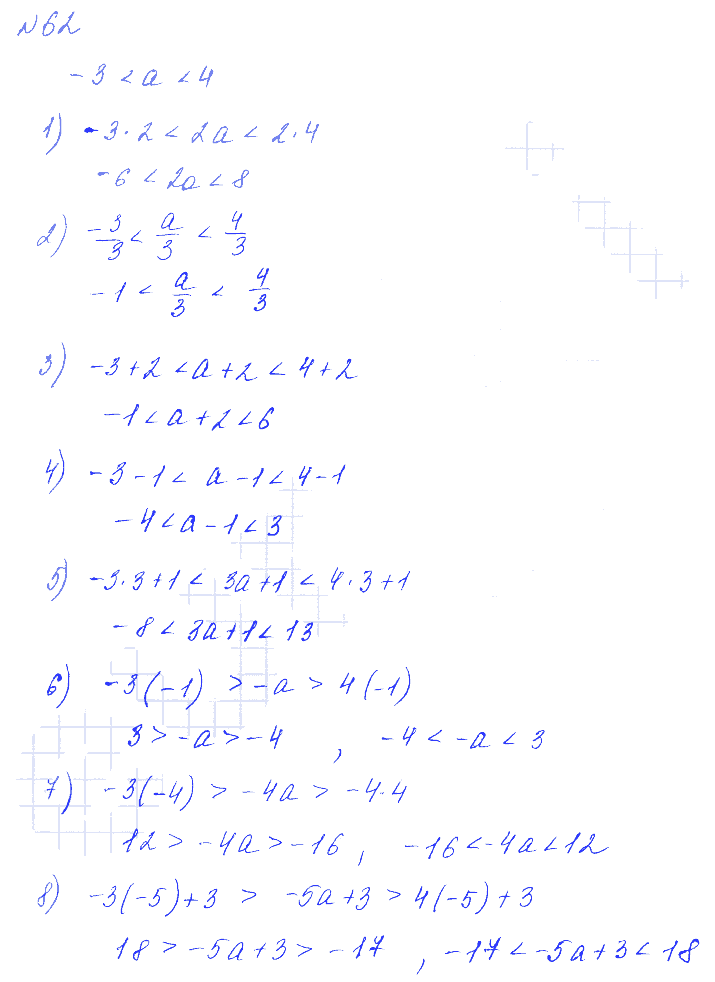 №62
-3 < a < 4
1) -3·2 < 2a < 2·4
-6 < 2a < 8
2) -3/3 < a/3 < 4/3
-1 < a/3 < 4/3
3) -3+2 < a+2 < 4+2
-1 < a+2 < 6
4) -3-1 < a-1 < 4-1
-4 < a-1 < 3
5) -3·3+1 < 3a+1 < 4·3+1
-8 < 3a+1 < 13
6) -3(-1) > -a > 4(-1)
3 > -a > -4 , -4 < -a < 3
7) -3(-4) > -4a > -4·4
12 > -4a > -16 , -16 < -4a < 12
8) -3(-5)+3 > -5a+3 > 4(-5)+3
18 > -5a+3 > -17 , -17 < -5a+3 < 18